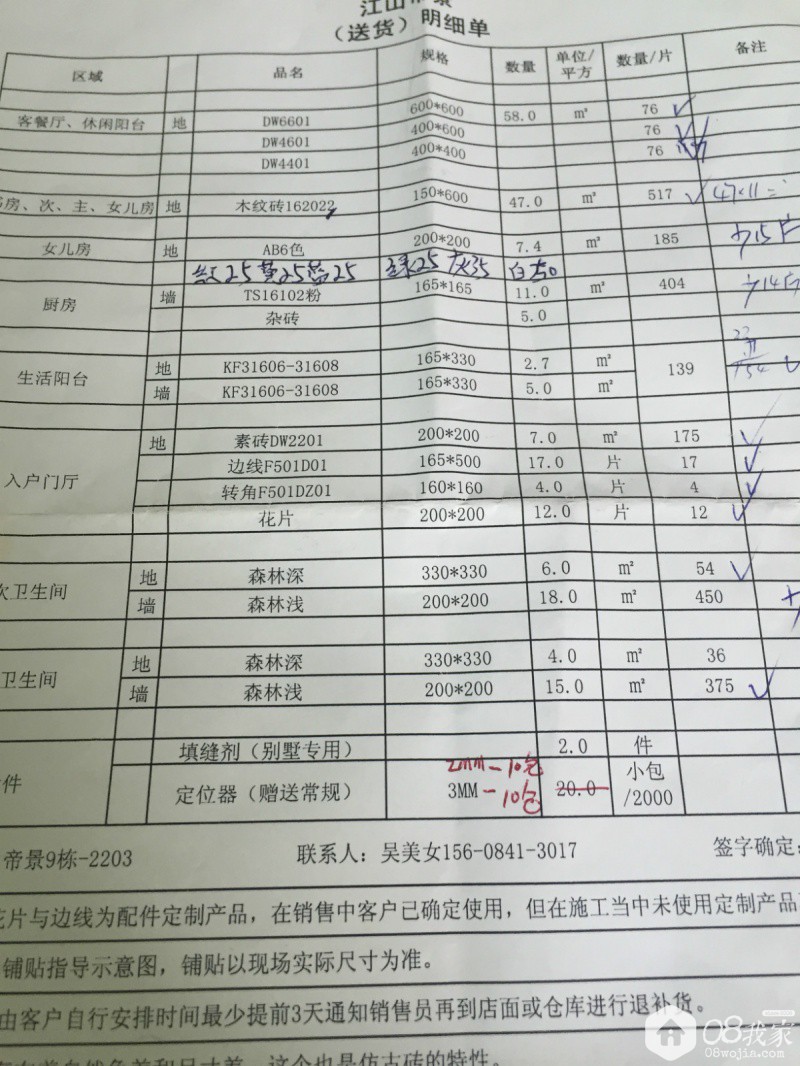 江山
（送货）明细单
区域 品名 规格 数量 单位/平方 数量/片 备注
客餐厅、休闲阳台 地 DW6601 600*600 58.0 m² 76
DW4601 400*600 76
DW4401 400*400 76
房、次、主、女儿房 地 木纹砖162022 150*600 47.0 m² 517 47×11=
女儿房 地 AB6色 200*200 7.4 m² 185 +15片
红25 黄25 蓝25 绿25 灰35 白50
厨房 墙 TS16102粉 165*165 11.0 m² 404 +14片
杂砖 5.0
生活阳台 地 KF31606-31608 165*330 2.7 m² 139
墙 KF31606-31608 165*330 5.0 m²
入户门厅 地 素砖DW2201 200*200 7.0 m² 175
边线F501D01 165*500 17.0 片 17
转角F501DZ01 160*160 4.0 片 4
花片 200*200 12.0 片 12
次卫生间 地 森林深 330*330 6.0 m² 54
墙 森林浅 200*200 18.0 m² 450
卫生间 地 森林深 330*330 4.0 m² 36
墙 森林浅 200*200 15.0 m² 375
件 填缝剂（别墅专用） 2.0 件
2MM-10包
定位器（赠送常规） 3MM-10包 20.0 小包/2000
帝景9栋-2203 联系人：吴美女156-0841-3017 签字确定：
花片与边线为配件定制产品，在销售中客户已确定使用，但在施工当中未使用定制产品
铺贴指导示意图，铺贴以现场实际尺寸为准。
由客户自行安排时间最少提前3天通知销售员再到店面或仓库进行退补货。
色差和尺寸差，这个也是仿古砖的特性。
08我家
08wojia.com